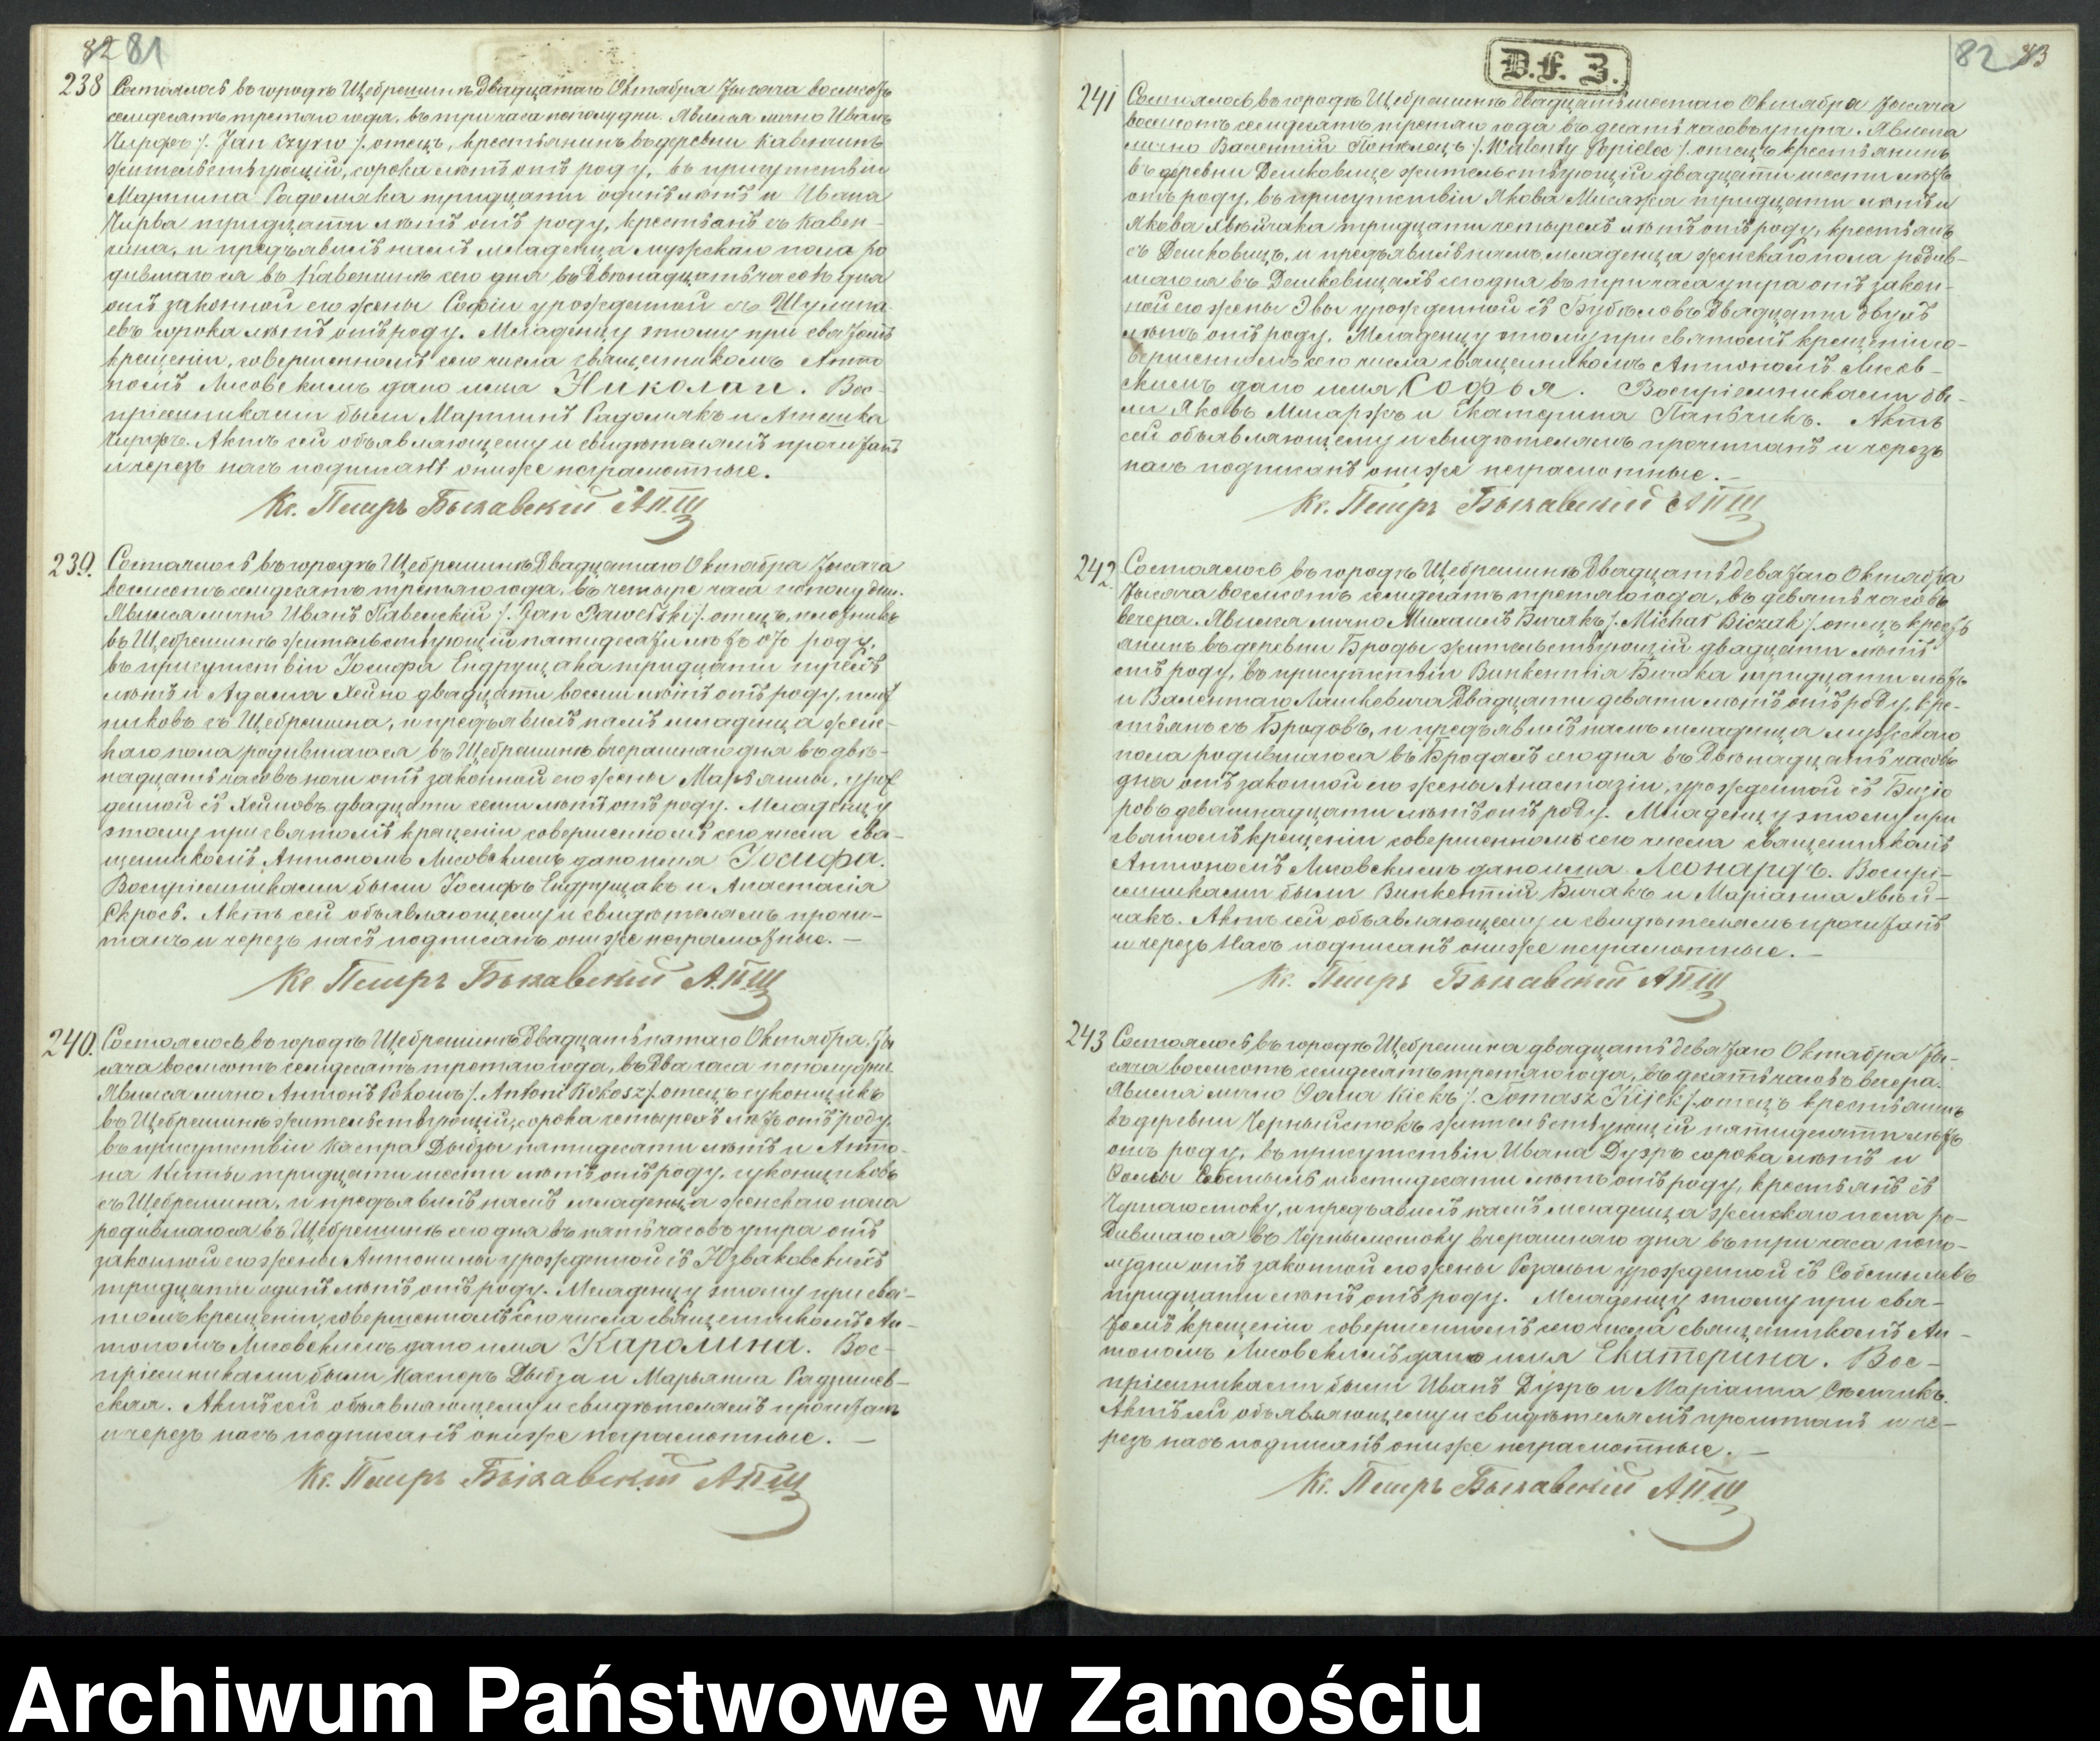 82 81
238 Состоялось въ городѣ Щебрешинѣ Двадцатаго Октября тысяча восемсотъ
семдесятъ третьяго года, въ три часа пополудни. Явился лично Иванъ
/: Jan Czyrw :/ отецъ, крестьянинъ въ деревни Кавенчинѣ
жительствующій, сорока лѣтъ отъ роду, въ присутствіи
Мартина Радомяка тридцати одинъ лѣтъ и Ивана
тридцати лѣтъ отъ роду, крестьянъ съ Кавен-
чина, и предъявилъ намъ младенца мужескаго пола ро
дившагося въ Кавенчинѣ сего дня въ двѣнадцать часовъ дня
отъ законной его жены Софіи урожденной съ
сорока лѣтъ отъ роду. Младенцу этому при святомъ
крещеніи, совершенномъ сего числа священникомъ Анто
номъ Лисовскимъ дано имя Николай. Вос-
пріемниками были Мартинъ Радомякъ и
Актъ сей объявляющему и свидѣтелямъ прочитанъ
и черезъ насъ подписанъ ониже неграмотные.
Кс. Петръ Быкавскій АПЩ
239. Состоялось въ городѣ Щебрешинѣ Двадцатаго Октября тысяча
восемсотъ семдесятъ третьяго года, въ четыре часа пополудни.
Явился лично Иванъ Павельскій /: Jan Pawelski :/ отецъ,
въ Щебрешинѣ жительствующій пятидесяти лѣтъ отъ роду,
въ присутствіи Іосифа Ендрущака тридцати трехъ
лѣтъ и Адама Хейно двадцати восьми лѣтъ отъ роду,
никовъ съ Щебрешина, и предъявилъ намъ младенца женс-
каго пола родившагося въ Щебрешинѣ вчерашняго дня въ двѣ-
надцать часовъ ночи отъ законной его жены Марьянны, урож
денной съ двадцати семи лѣтъ отъ роду. Младенцу
этому при святомъ крещеніи совершенномъ сего числа свя-
щенникомъ Антономъ Лисовскимъ дано имя Іосифа.
Воспріемниками были Іосифъ Ендрущакъ и Анастасія
Актъ сей объявляющему и свидѣтелямъ прочи-
танъ и черезъ насъ подписанъ ониже неграмотные. —
Кс Петръ Быкавскій А.П.Щ
240. Состоялось въ городѣ Щебрешинѣ Двадцать пятаго Октября ты
сяча восемсотъ семдесятъ третьяго года, въ два часа пополудни.
Явился лично Антонъ Рокошъ /: Antoni Rokosz :/ отецъ суконщикъ
въ Щебрешинѣ жительствующій, сорока четырехъ лѣтъ отъ роду,
въ присутствіи Каспра Дыбзы пятидесяти лѣтъ и Анто-
на тридцати шести лѣтъ отъ роду, суконщиковъ
съ Щебрешина, и предъявилъ намъ младенца женскаго пола
родившагося въ Щебрешинѣ сего дня въ пять часовъ утра отъ
законной его жены Антонины урожденной съ Юзваковскихъ
тридцати одинъ лѣтъ отъ роду. Младенцу этому при свя-
томъ крещеніи, совершенномъ сего числа священникомъ Ан-
тономъ Лисовскимъ дано имя Каролина. Вос-
пріемниками были Касперъ Дыбза и Марьянна Радзишев-
ская. Актъ сей объявляющему и свидѣтелямъ прочитанъ
и черезъ насъ подписанъ ониже неграмотные. —
Кс. Петръ Быкавскій АПЩ
D.F.Z.
82 83
241 Состоялось въ городѣ Щебрешинѣ двадцать шестаго Октября тысяча
восемсотъ семдесятъ третьяго года въ десять часовъ утра. Явился
лично Валентій Попелецъ /: Walenty Popielec :/ отецъ крестьянинъ
въ деревни Дешковице жительствующій двадцати шести лѣтъ
отъ роду, въ присутствіи Якова тридцати лѣтъ и
Якова тридцати четырехъ лѣтъ отъ роду, крестьянъ
съ Дешковицъ, и предъявилъ намъ младенца женскаго пола родив-
шагося въ Дешковицахъ сего дня въ три часа утра отъ закон-
ной его жены Эвы урожденной съ двадцати двухъ
лѣтъ отъ роду. Младенцу этому при святомъ крещеніи со-
вершенномъ сего числа священникомъ Антономъ Лисов-
скимъ дано имя Софья. Воспріемниками бы-
ли Яковъ и Екатерина Актъ
сей объявляющему и свидѣтелямъ прочитанъ и черезъ
насъ подписанъ ониже неграмотные. —
Кс. Петръ Быкавскій АПЩ
242. Состоялось въ городѣ Щебрешинѣ Двадцать девятаго Октября
тысяча восемсотъ семдесятъ третьяго года, въ девять часовъ
вечера. Явился лично Михаилъ Бичакъ /: Michał Biczak :/ отецъ крестъ
янинъ въ деревни Броды жительствующій двадцати лѣтъ
отъ роду, въ присутствіи Винкентія Бичака тридцати лѣтъ
и Валентаго двадцати девяти лѣтъ отъ роду, кре-
стьянъ съ Бродовъ, и предъявилъ намъ младенца мужскаго
пола родившагося въ Бродахъ сего дня въ Двѣнадцать часовъ
дня отъ законной его жены Анастазіи, урожденной съ
девятнадцати лѣтъ отъ роду. Младенцу этому при
святомъ крещеніи совершенномъ сего числа священникомъ
Антономъ Лисовскимъ дано имя Леонардъ. Воспрі-
емниками были Винкентій Бичакъ и Маріанна
Актъ сей объявляющему и свидѣтелямъ прочитанъ
и черезъ насъ подписанъ ониже неграмотные. —
Кс. Петръ Быкавскій АПЩ
243 Состоялось въ городѣ Щебрешина двадцать девятаго Октября ты-
сяча восемсотъ семдесятъ третьяго года, въ десять часовъ вечера.
Явился лично Фома Кіекъ /: Tomasz Kijek :/ отецъ крестьянинъ
въ деревни Черныйстокъ жительствующій пятидесяти лѣтъ
отъ роду, въ присутствіи Ивана Дуэръ сорока лѣтъ и
шестидесяти лѣтъ отъ роду, крестьянъ съ
и предъявилъ намъ младенца женскаго пола ро-
дившагося въ Чернымстоку вчерашняго дня въ три часа попо-
лудни отъ законной его жены Розальи урожденной съ
тридцати лѣтъ отъ роду. Младенцу этому при свя-
томъ крещеніи совершенномъ сего числа священникомъ Ан-
тономъ Лисовскимъ дано имя Екатерина. Вос-
пріемниками были Иванъ Дуэръ и Маріанна
Актъ сей объявляющему и свидѣтелямъ прочитанъ и че-
резъ насъ подписанъ ониже неграмотные. —
Кс. Петръ Быкавскій АПЩ
Archiwum Państwowe w Zamościu